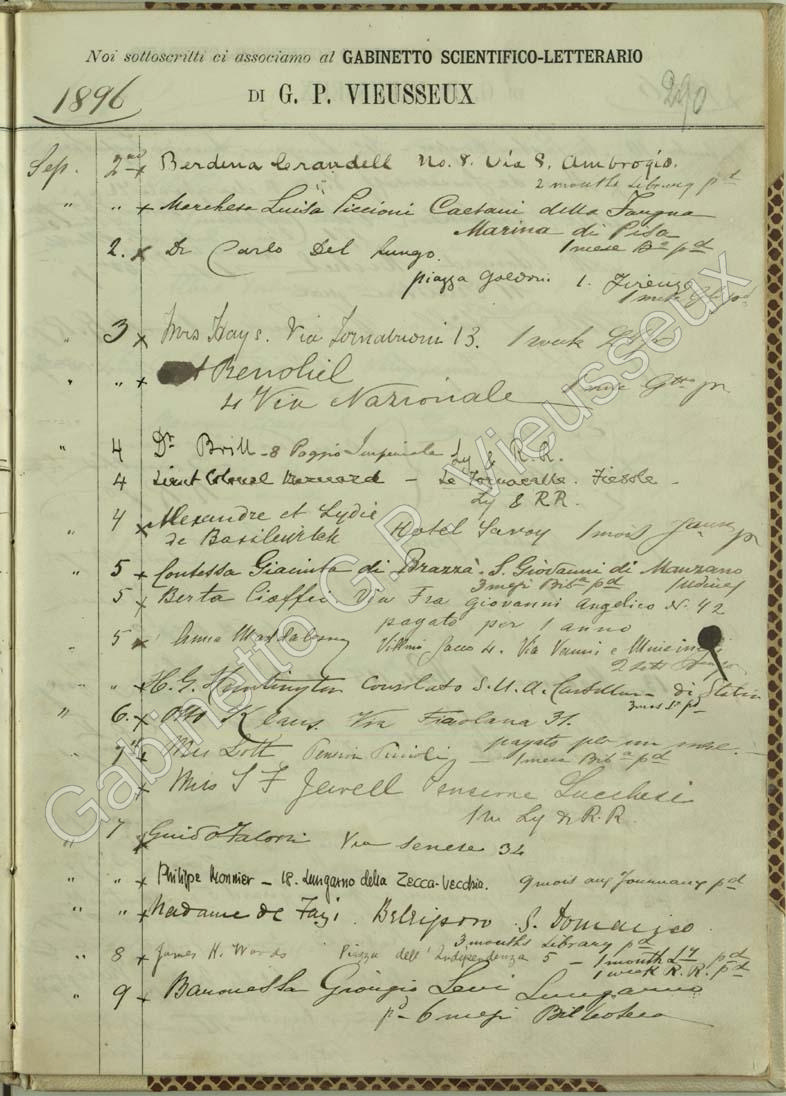 Noi sottoscritti ci associamo al GABINETTO SCIENTIFICO-LETTERARIO
DI G. P. VIEUSSEUX
1896
290
Sep. 2nd x Berdena Crandell No. 8. Via S. Ambrogio.
2 months Library pd
" " x Marchesa Luisa Piccioni Caetani della
Marina di Pisa
1 mese Ba pd
2. x Dr Carlo Del Lungo.
piazza Goldoni 1. Firenze
1 mese
" 3 x Mrs Hays. Via Tornabuoni 13. 1 week
" " x Benoliel
4 Via Nazionale
" 4 Dr Brill - 8 Poggio Imperiale Ly & R.R.
4 Lieut Colonel - Le Fiesole -
Ly & RR.
" 4 x Alexandre et Lydie
de Basilewitch Hotel Savoy 1 mois
" 5 x Contessa Giacinta di Brazzà. S. Giovanni di Manzano
3 mesi Biba pd (Udine)
5 x Berta Via Fra Giovanni Angelico N. 42
pagato per 1 anno
5 x Anna 4. Via
" x H. G. Huntington Consolato S. U. A. di
3 mos pd
" 6. x Otto Klaus. Via Fiesolana 31.
pagato per un mese. -
7th x Mrs Lott Pension - 1 mese Biba pd
x Miss S F Jewell Pensione Lucchesi
Ly & R.R.
" 7 x Guido Falorsi Via Senese 34
" " x Philippe Monnier - 18. Lungarno della Zecca-Vecchia. 9 mois aux Journaux pd
" " x Madame de S. Domenico
3 months Library pd
" 8 x James H. Woods Piazza dell' Independenza 5 - 1 month Ly pd
1 week R.R. pd
" 9 x Baronessa Giorgio Levi Lungarno
pd - 6 mesi Biblioteca
Gabinetto G.P. Vieusseux